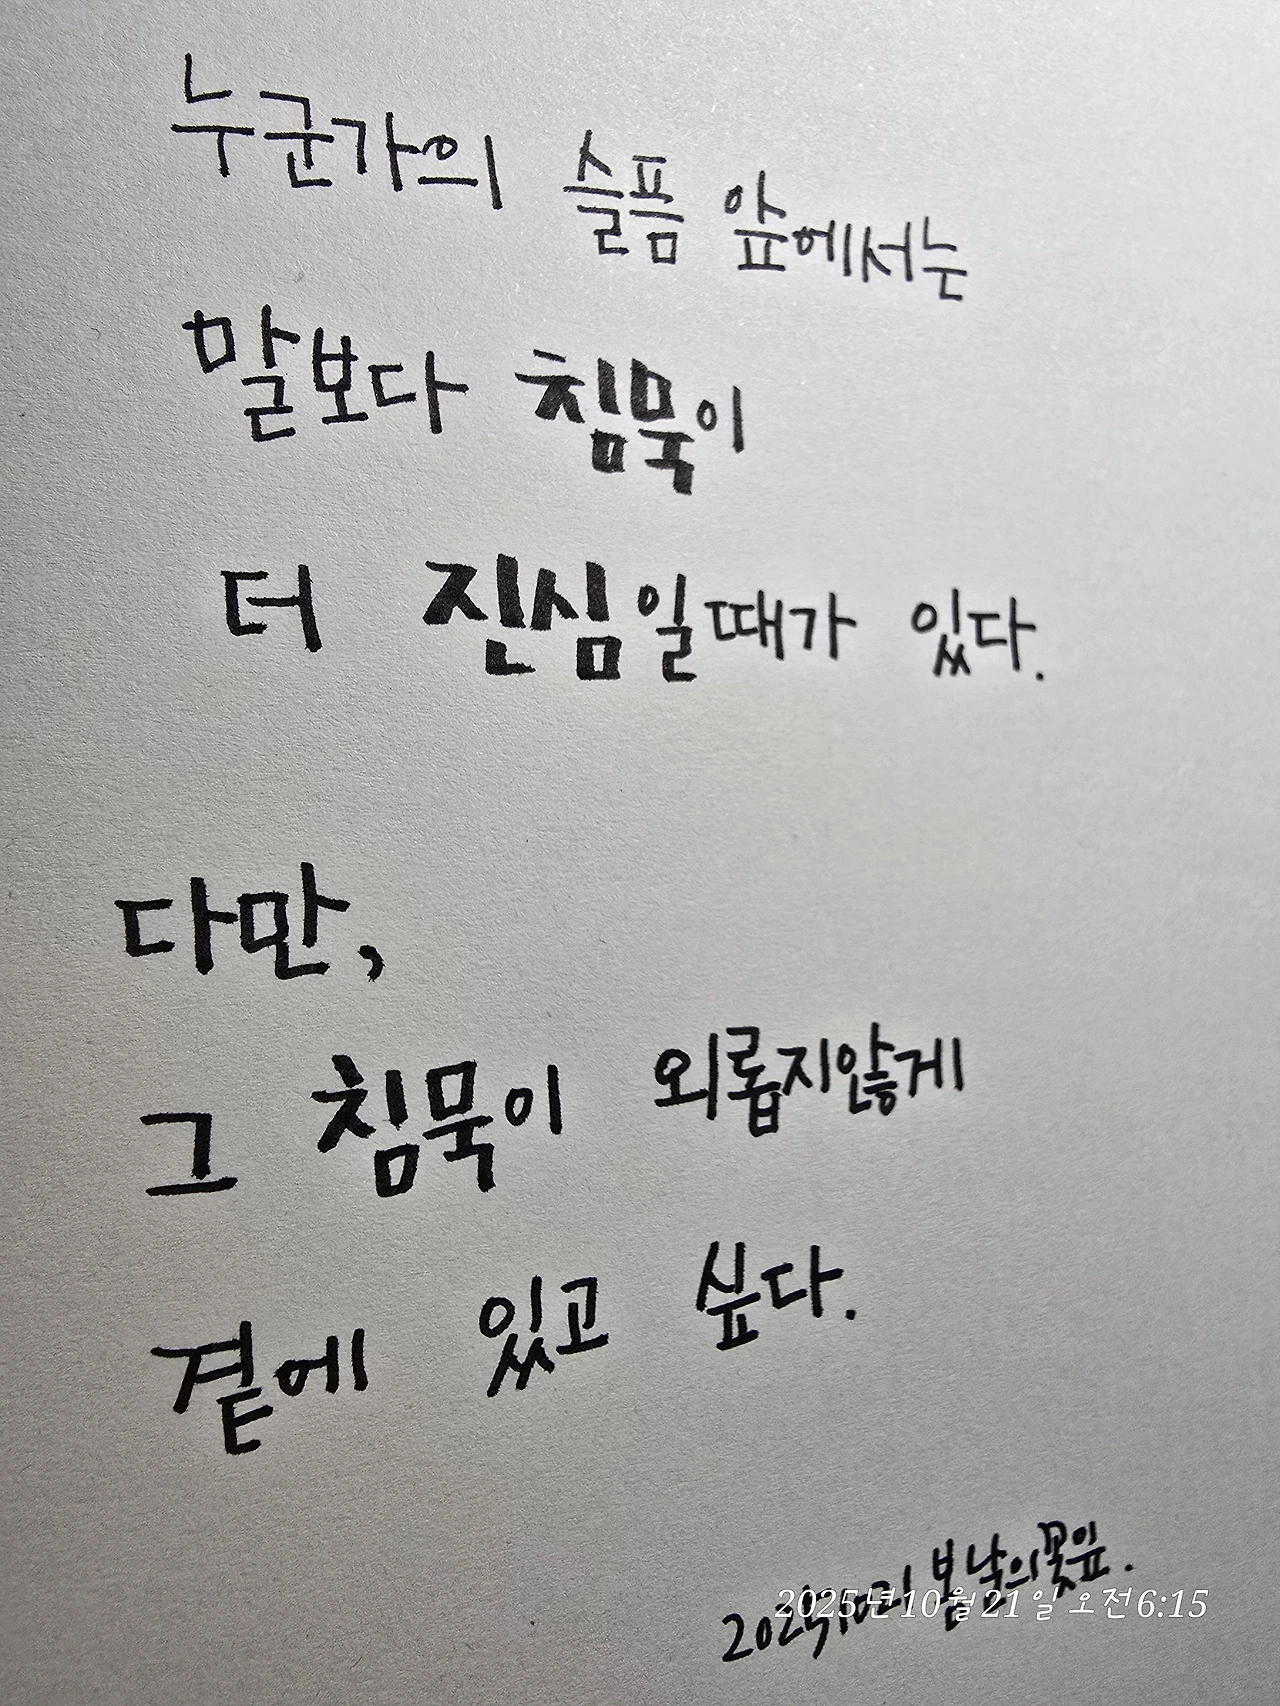 누군가의 슬픔 앞에서는
말보다 침묵이
더 진심일때가 있다.
다만,
그 침묵이 외롭지않게
곁에 있고 싶다.
봄날의꽃잎.
2025년10월21일 오전6:15